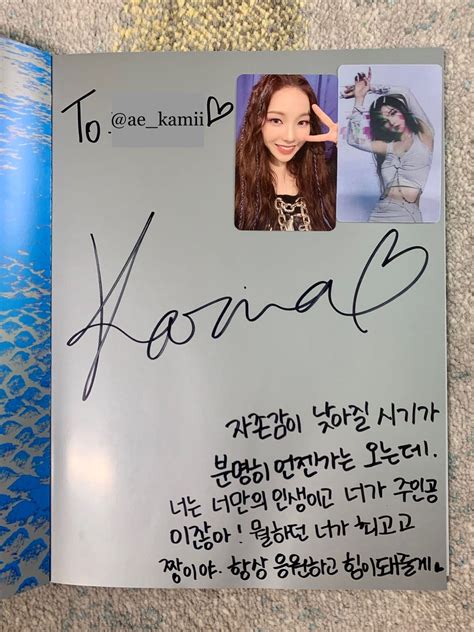 To. @ae_kamii♡
Karina♡
자존감이 낮아질 시기가
분명히 언젠가는 오는데.
너는 너만의 인생이고 너가 주인공
이잖아! 뭘하던 너가 최고고
짱이야. 항상 응원하고 힘이돼줄게♥